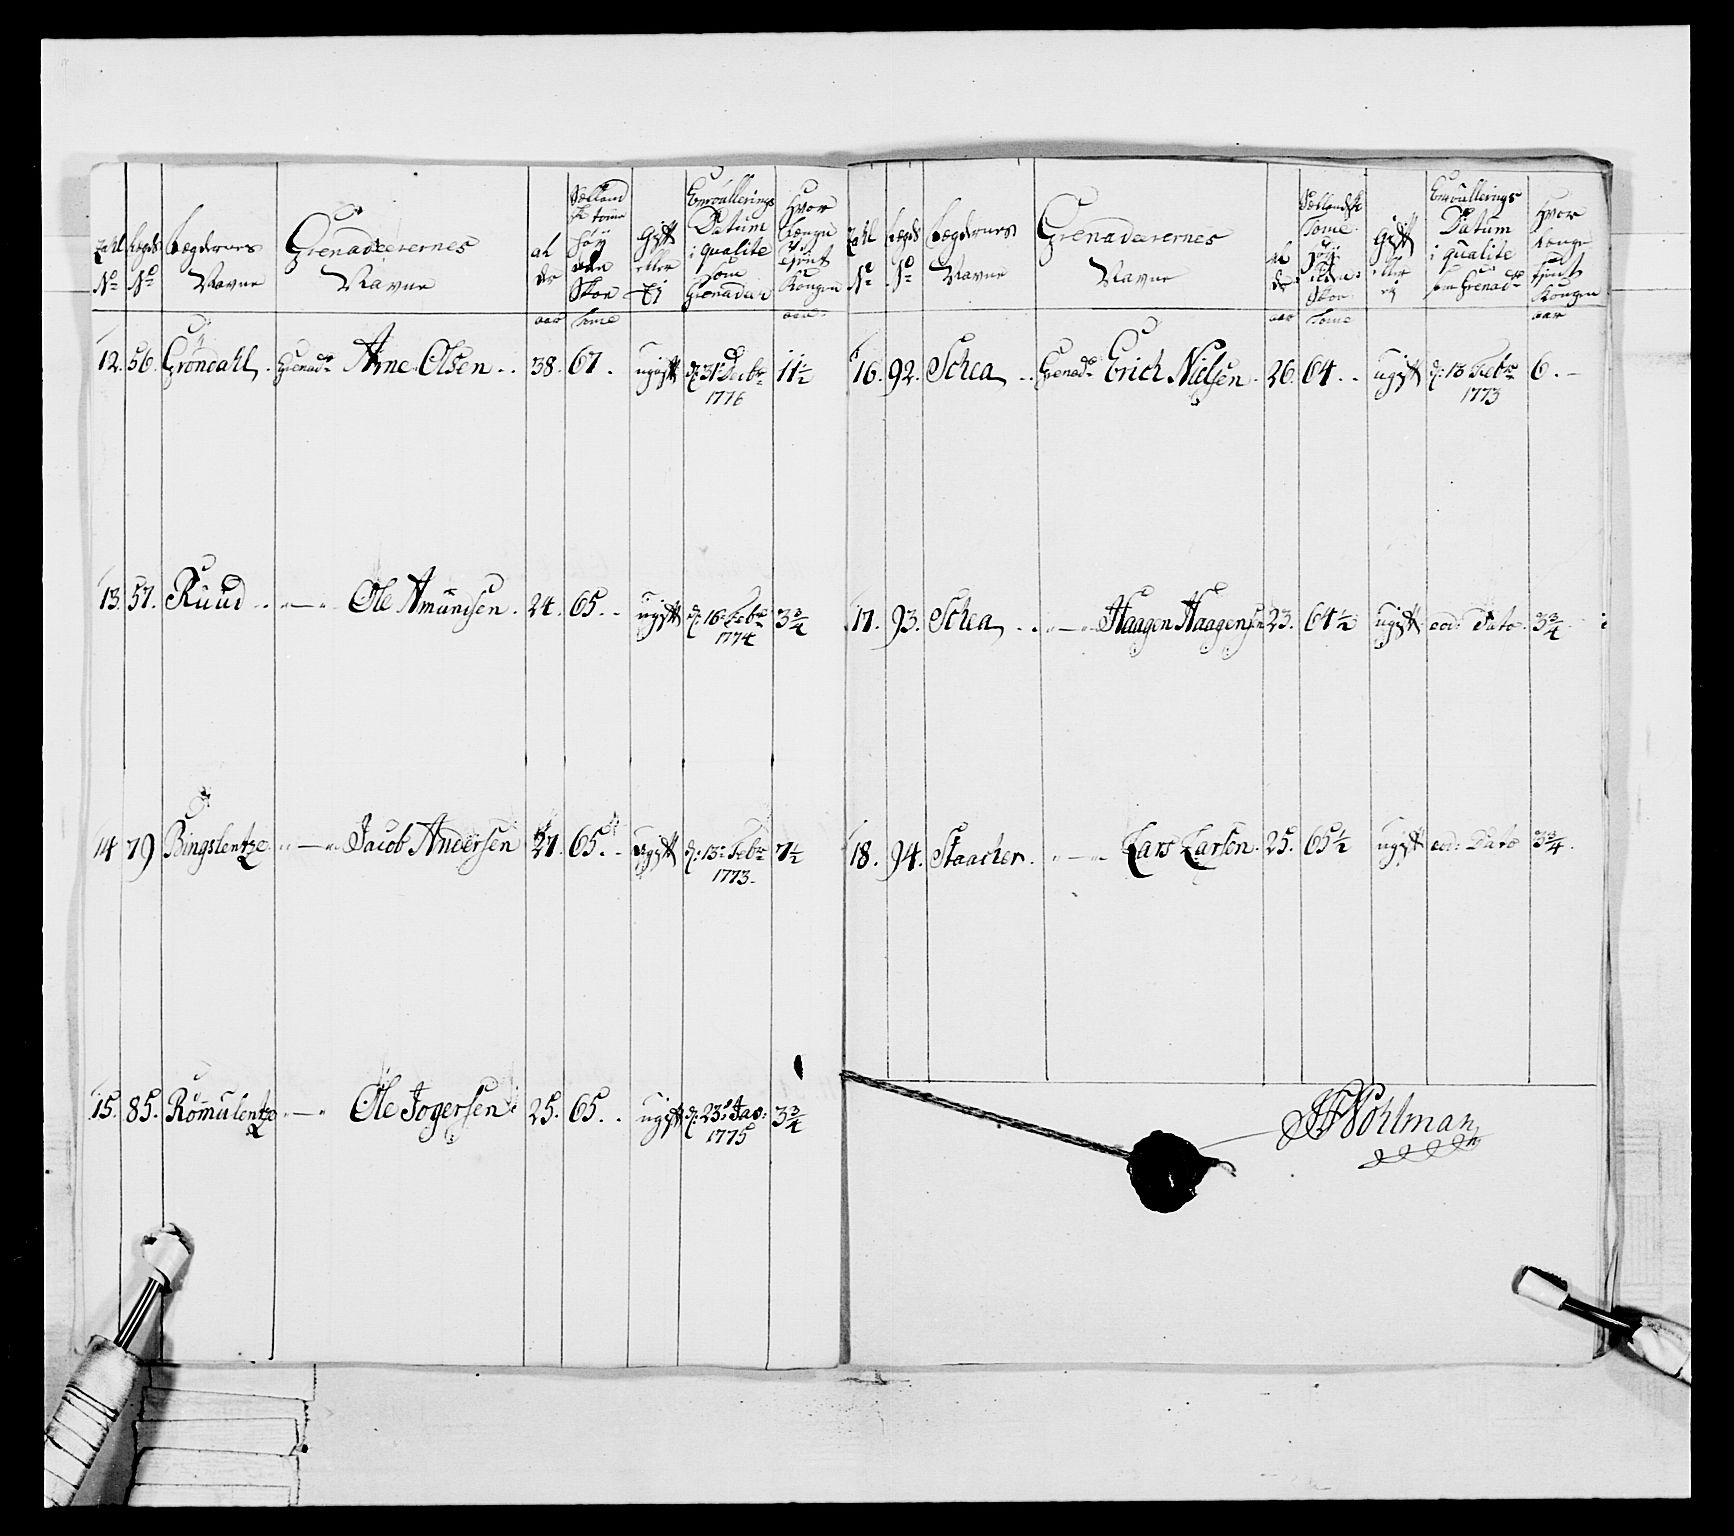 Tahl No | Lægds No | Lægdernes Navne | Grenadeerernes Navne | al der | Siælland ske tomer høy uden Skoe | Gift eller Ej | Enroullerings Datum i qualite som Grenadeer | Hvor længe tient Kongen
aar | tome | aar
12. | 56. | Grøndahl. | Grenadr Arne Olsen.. | 38. | 67. | ugift | d: 31 Decbr 1776 | 11½
13. | 57. | Ruud.. | "—" Ole Amundsen. | 24. | 65.. | ugift | d: 16 Febr 1774 | 3¾
14 | 79 | Bingslentze. | "—" Jacob Andersen | 27. | 65.. | ugift | d: 13 Febr 1773. | 7½
15. | 85. | Romulentze | "—" Ole Jogersen. | 25. | 65.. | ugift | d: 23 Jan: 1775 | 3¾
Tahl No | Lægds No | Lægdernes Navne | Grenadeerernes Navne | al der | Siællandsk Tome høy uden Skoe | Gift eller ej | Enroullerings Datum i qualite som Grenadr | Hvor længe tient Kongen
aar | tome | aar
16. | 92. | Schea.. | Grenadr Erich Nielsen. | 26. | 64.. | ugift | d: 13 Febr 1773 | 6.—
17. | 93. | Schea.. | "—" Haagen Haagensen | 23. | 64½ | ugift | eod: Dato. | 3¾
18. | 94. | Staacher. | "—" Lars Larsen. | 25. | 65½ | ugift | eod: Dato | 3¾.
Wohlman